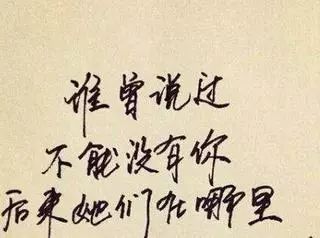 谁曾说过
不能没有你
后来她们在哪里